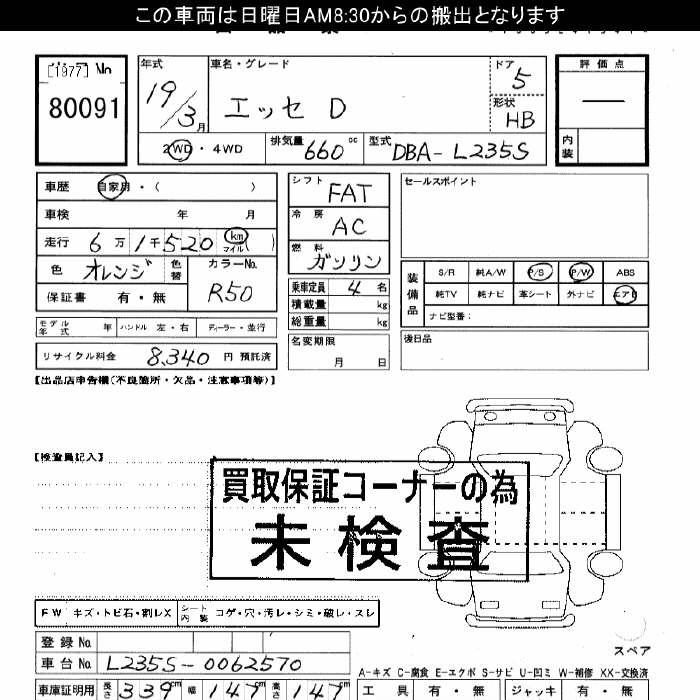 この車両は日曜日AM8:30からの搬出となります
[1977] No
80091
年式
19/3月
車名・グレード
エッセ D
ドア
5
形状
HB
評価点
—
内装
2WD・4WD
排気量 660 cc
型式 DBA-L235S
車歴 自家用・( )
車検 年 月
走行 6万1千520 km マイル( )
色 オレンジ 色替
カラーNo. R50
保証書 有・無
モデル年式 年 ハンドル 左・右 ディーラー・並行
リサイクル料金 8,340 円 預託済
シフト FAT
冷房 AC
燃料 ガソリン
乗車定員 4 名
積載量 kg
総重量 kg
名変期限
月 日
セールスポイント
装備品
S/R 純A/W P/S P/W ABS
純TV 純ナビ 革シート 外ナビ エアB
ナビ型番:
後日品
【出品店申告欄(不良箇所・欠品・注意事項等)】
【検査員記入】
買取保証コーナーの為
未検査
FW キズ・トビ石・割レX
シート内装 コゲ・穴・汚レ・シミ・破レ・スレ
登録No.
車台No. L235S-0062570
車庫証明用 長さ 339cm 幅 147cm 高さ 147cm
スペア
A-キズ C-腐食 E-エクボ S-サビ U-凹ミ W-補修 XX-交換済
工具 有・無 ジャッキ 有・無